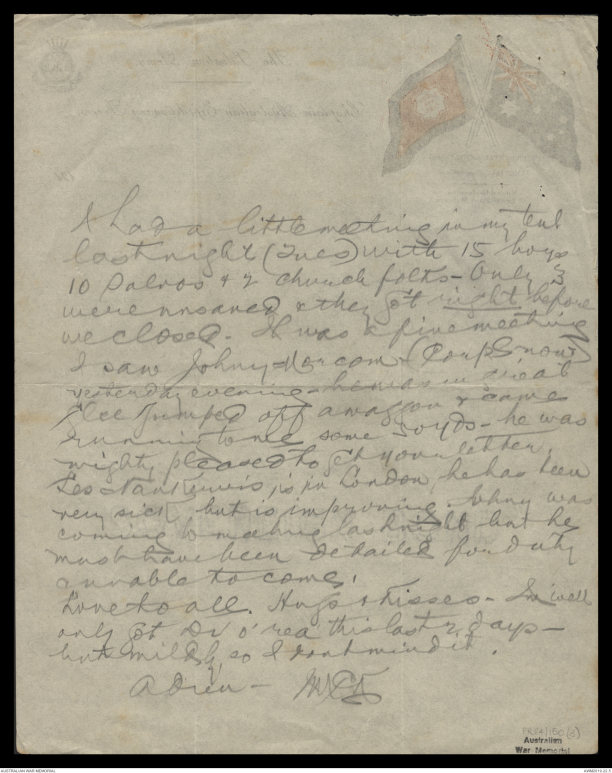 I had a little meeting in my tent
last night (Tues) with 15 boys
10 Salvos & 2 church folks - Only 3
were unsaved & they got right before
we closed. It was a fine meeting
I saw Johny (Corp now)
yesterday evening - he was in great
glee jumped off a waggon & came
running to me some 30 yds - he was
mighty pleased to get your letter,
Les is in London, he has been
very sick, but is improving. Johny was
coming to meeting last night but he
must have been detailed for duty
& unable to come.
Love to all. Hugs & Kisses - Im well
only got Di o'rea this last 2 days -
but mildly, so I dont mind it.
Adieu -
Australian
War Memorial
AUSTRALIAN WAR MEMORIAL